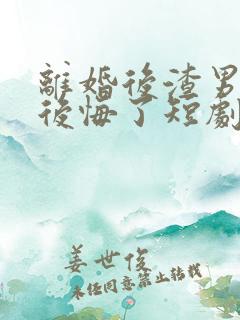 離婚後渣男
後悔了短劇
姜世俊
未任同意禁止轉載